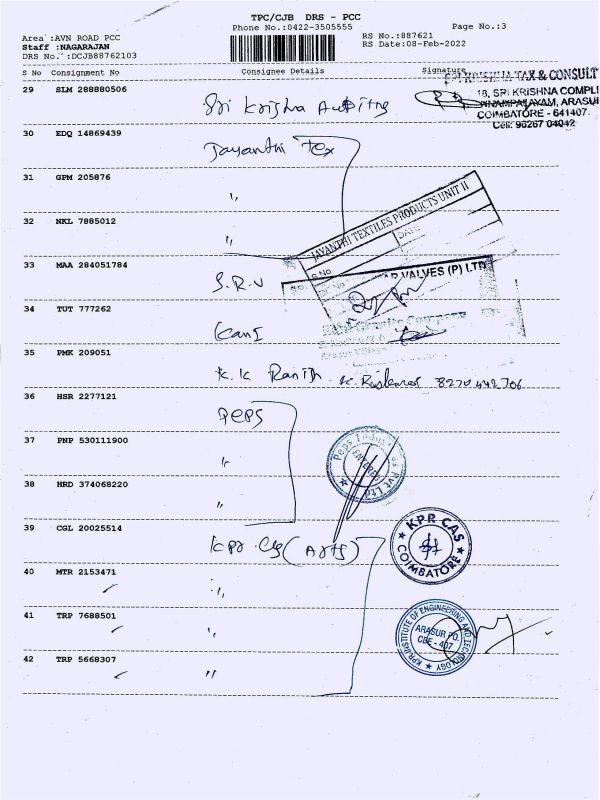 TPC/CJB DRS - PCC
Phone No.:0422-3505555
Page No.:3
Area :AVN ROAD PCC
Staff :NAGARAJAN
DRS No. :DCJB88762103
RS No.:887621
RS Date:08-Feb-2022
S No Consignment No Consignee Details Signature
TAX & CONSULT
18, SRI KRISHNA COMPL
COIMBATORE - 641407.
Cell: 96267 04042
29 SLM 288880506 Sri Krishna
30 EDQ 14869439 Jayanthi Tex
31 GPM 205876 "
32 NKL 7885012 "
JAYANTHI TEXTILES PRODUCTS UNIT II
DATE
S.No
33 MAA 284051784 S.R.V
VALVES (P) LTD
34 TUT 777262
35 PMK 209051 K.K 8270442706
36 HSR 2277121 PEPS
37 PNP 530111900 "
38 HRD 374068220 "
Peps Indus Pvt Ltd
39 CGL 20025514 Kpr (Arts)
KPR CAS
COIMBATORE
40 MTR 2153471 "
41 TRP 7688501 "
KPR INSTITUTE OF ENGINEERING AND TECHNOLOGY
ARASUR PO.
CBE - 407
42 TRP 5668307 "